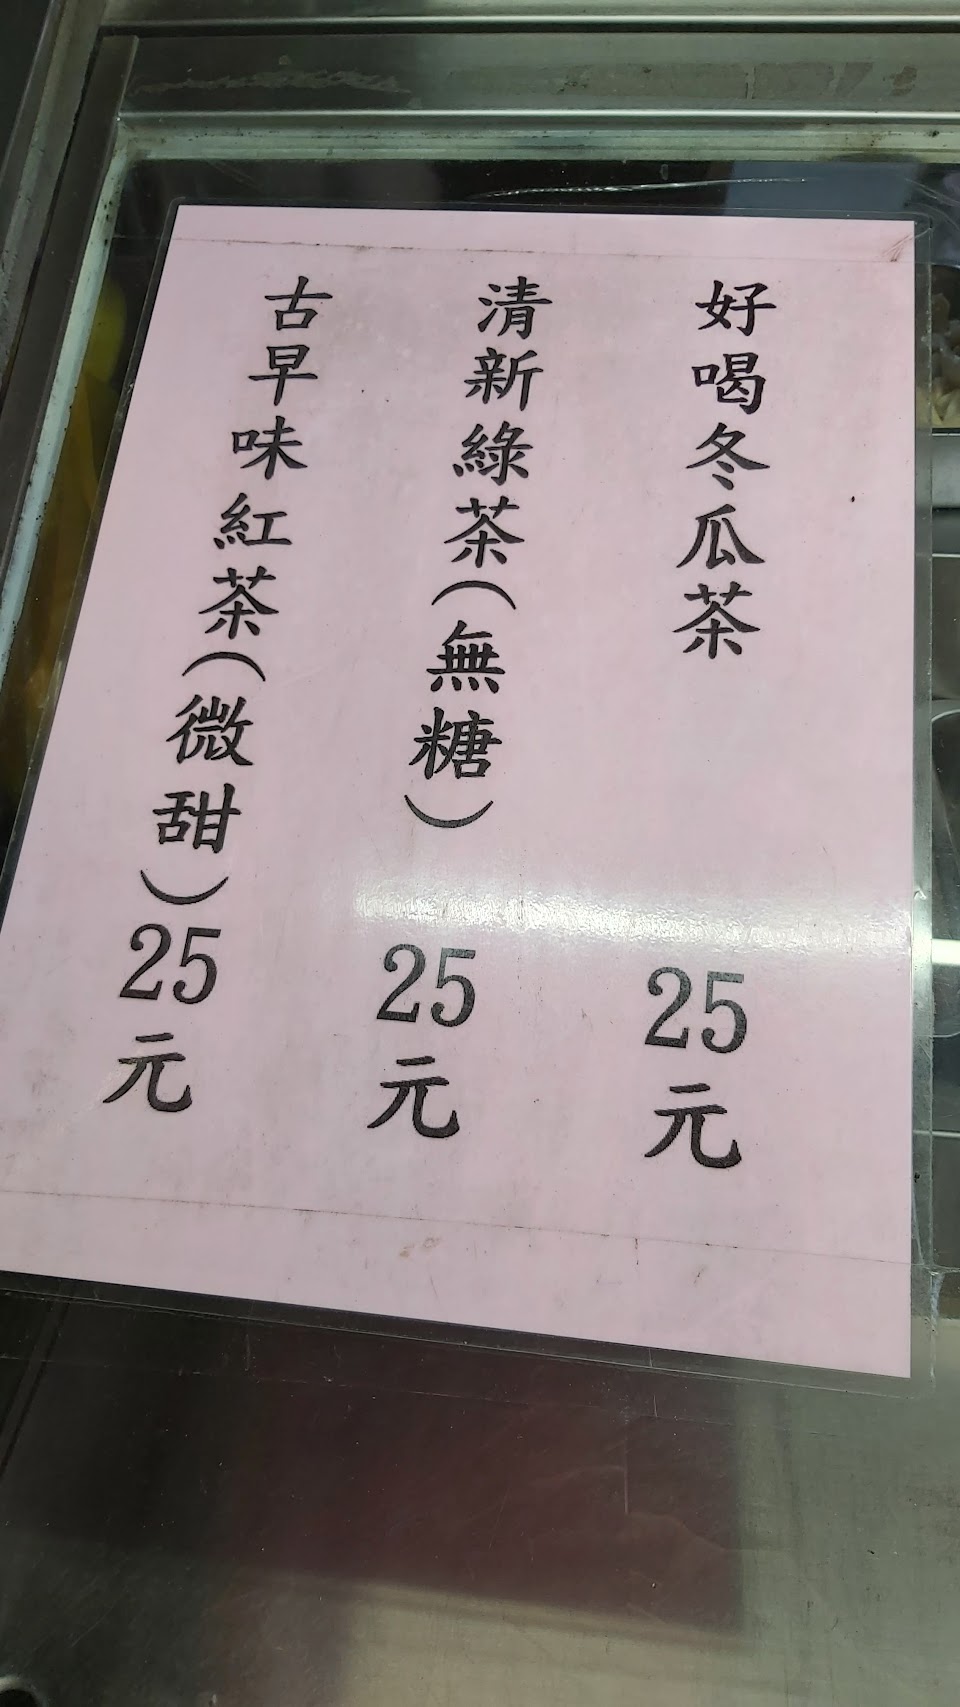 好喝冬瓜茶 25元
清新綠茶(無糖) 25元
古早味紅茶(微甜)25元